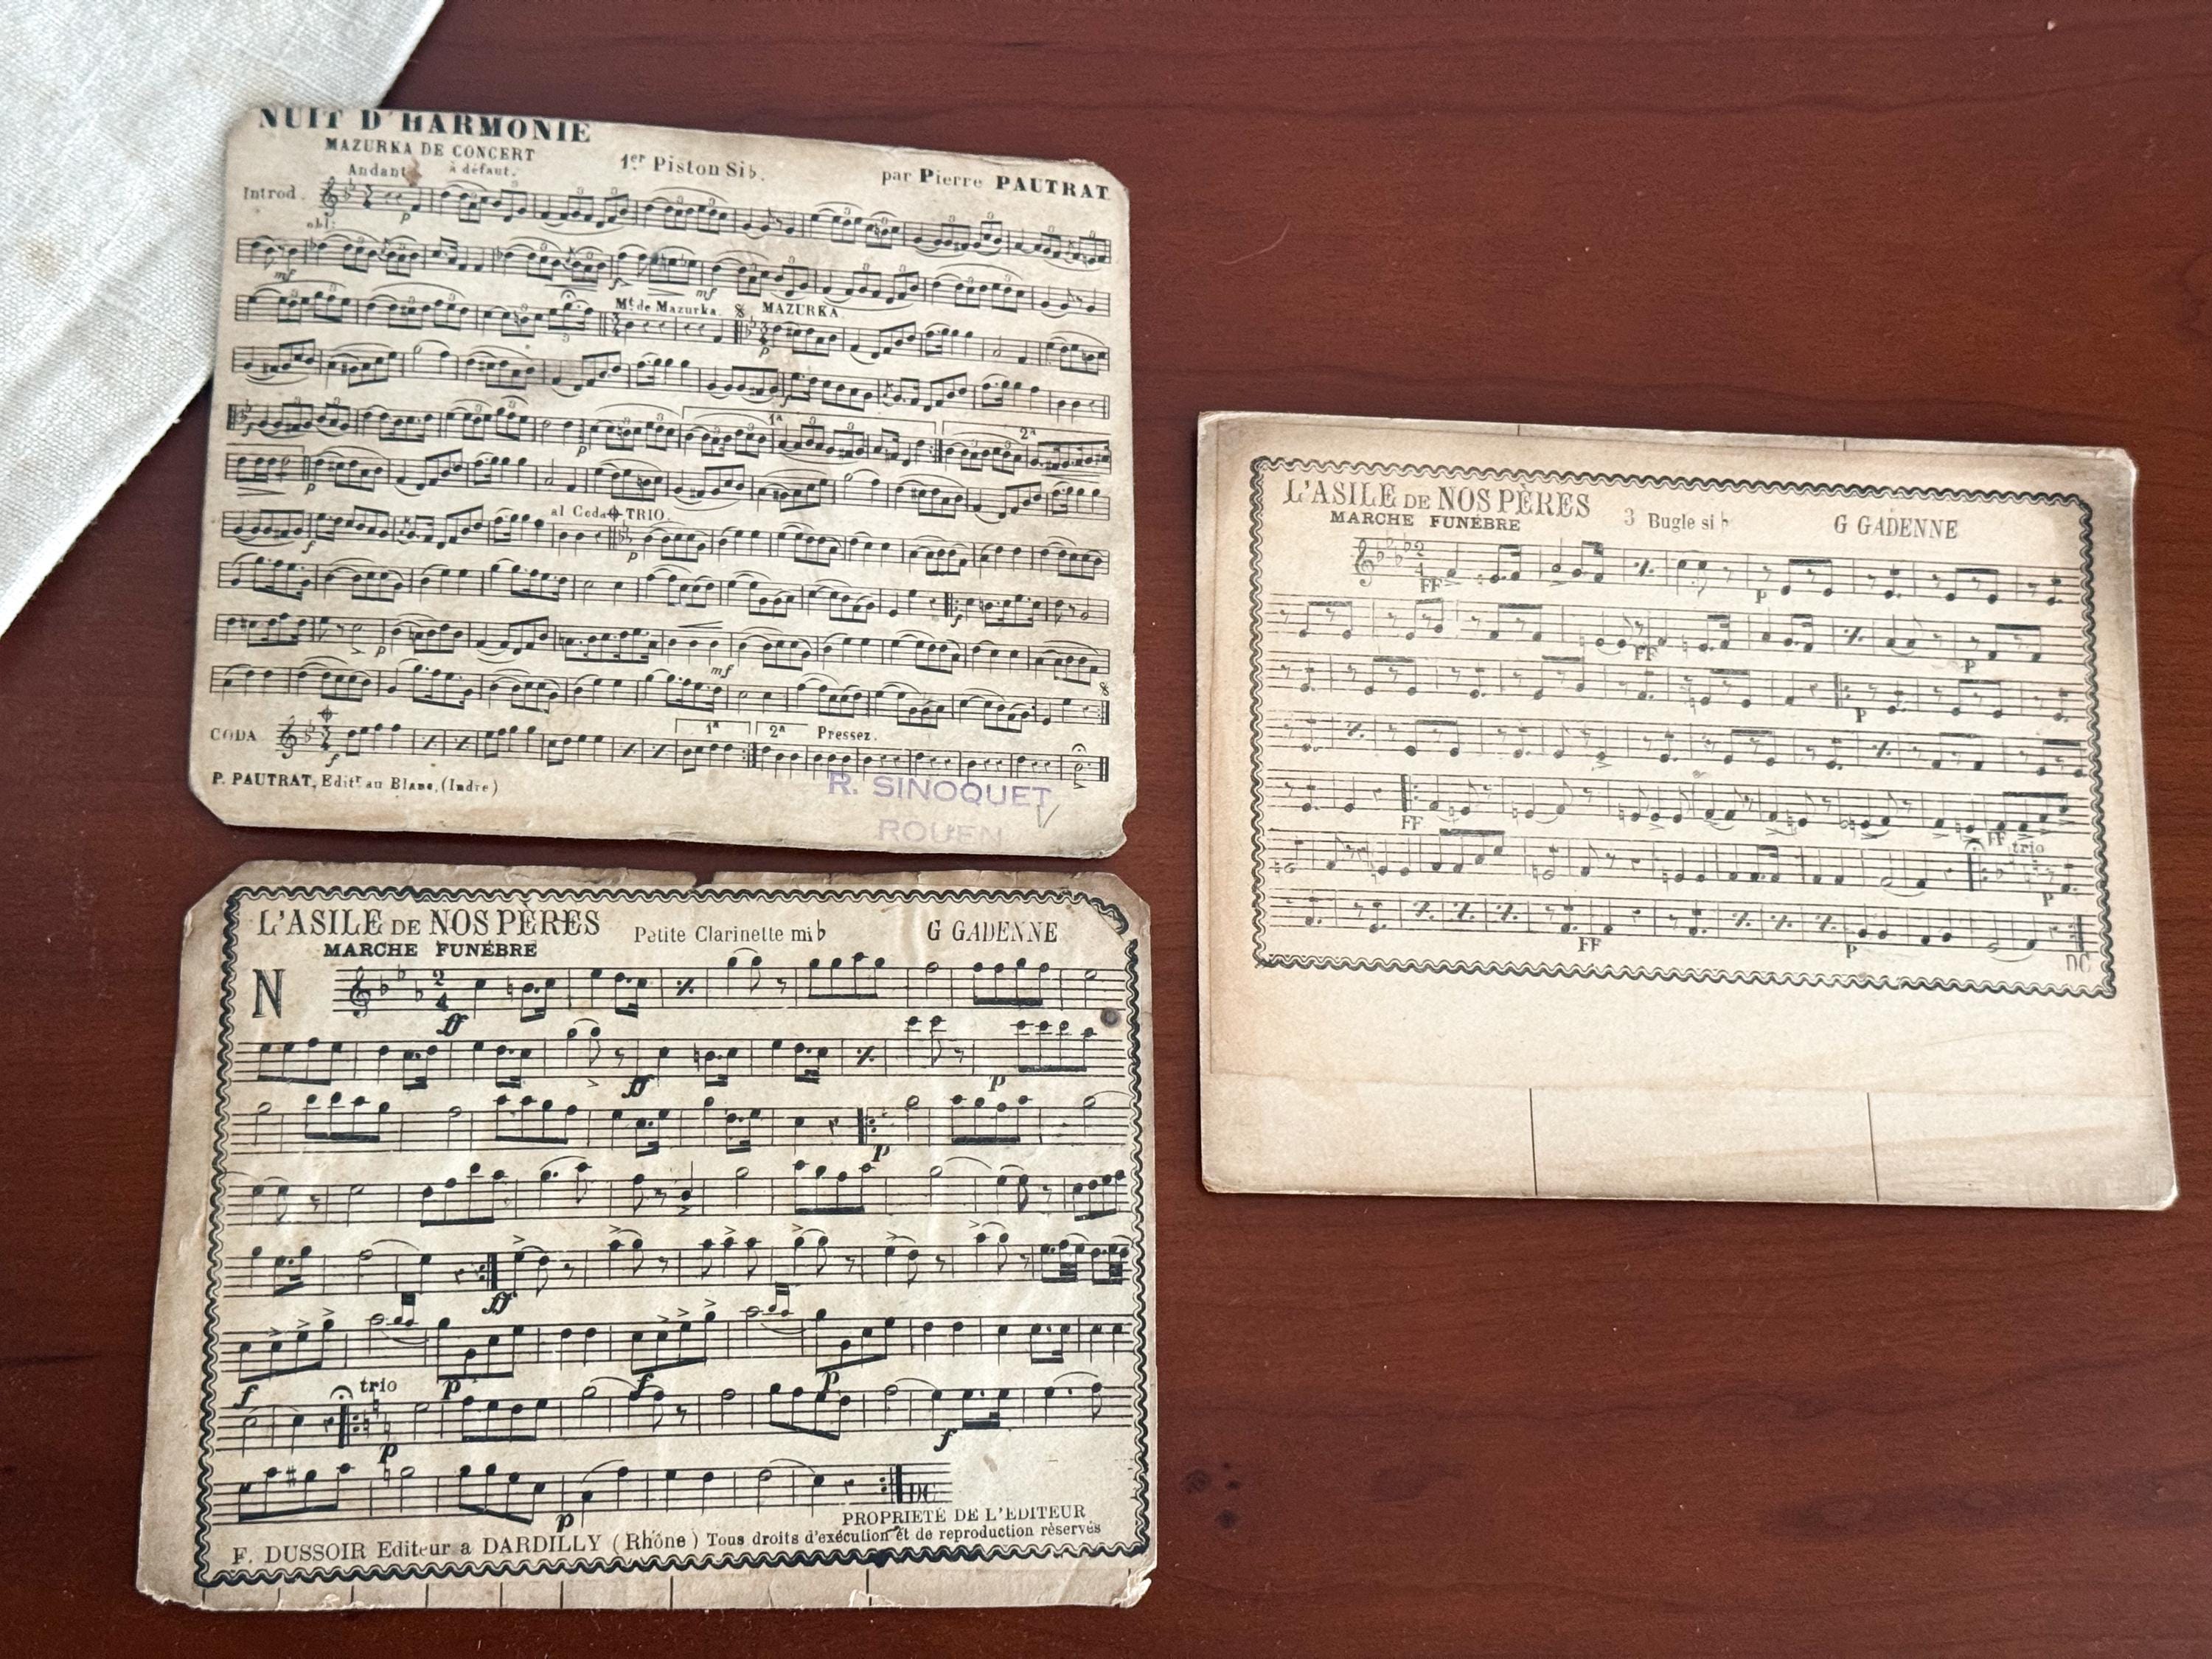 NUIT D'HARMONIE
MAZURKA DE CONCERT
1er Piston Si♭.
par Pierre PAUTRAT
Andante à défaut.
Introd.
p
obl:
mf
f
mf
Mt de Mazurka. MAZURKA.
p
f
1ª
p
2ª
p
al Coda TRIO.
f
p
f
p
mf
CODA
1ª 2ª Pressez.
f
P. PAUTRAT, Editr au Blanc, (Indre)
R. SINOQUET
ROUEN
L'ASILE DE NOS PÈRES
MARCHE FUNÉBRE
Petite Clarinette mi♭
G GADENNE
N
ff
ff p
p
ff
f p f p
trio
p f
p
DC
PROPRIETÉ DE L'EDITEUR
F. DUSSOIR Editeur a DARDILLY (Rhône) Tous droits d'exécution et de reproduction réservés
L'ASILE DE NOS PÈRES
MARCHE FUNÉBRE
3 Bugle si♭
G GADENNE
FF p
FF p
p
FF FF
trio
p
FF p
DC